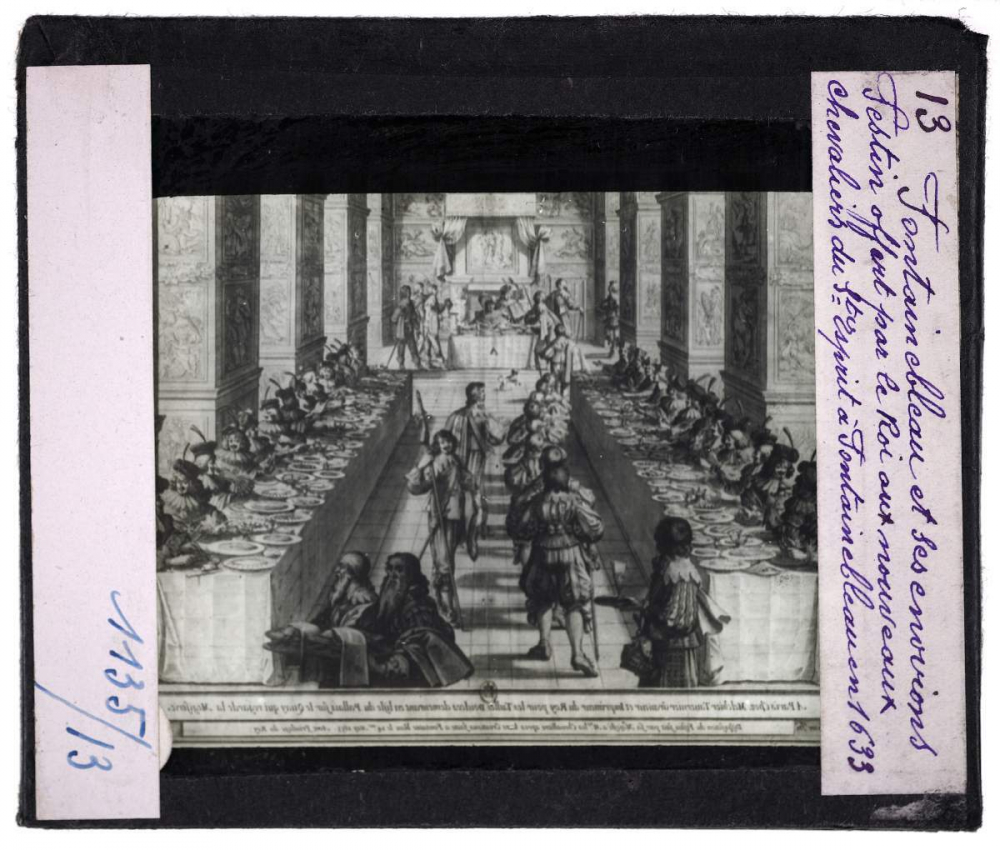 13 Fontainebleau et ses environs
Festin offert par le Roi aux nouveaux
chevaliers du St Esprit à Fontainebleau en 1633
1135/13
A
A Paris Chez Melchior Tavernier Graveur et Imprimeur du Roy pour les Tailles Douces demeurant en Isle du Pallais sur le Quay qui regarde la Megisserie.